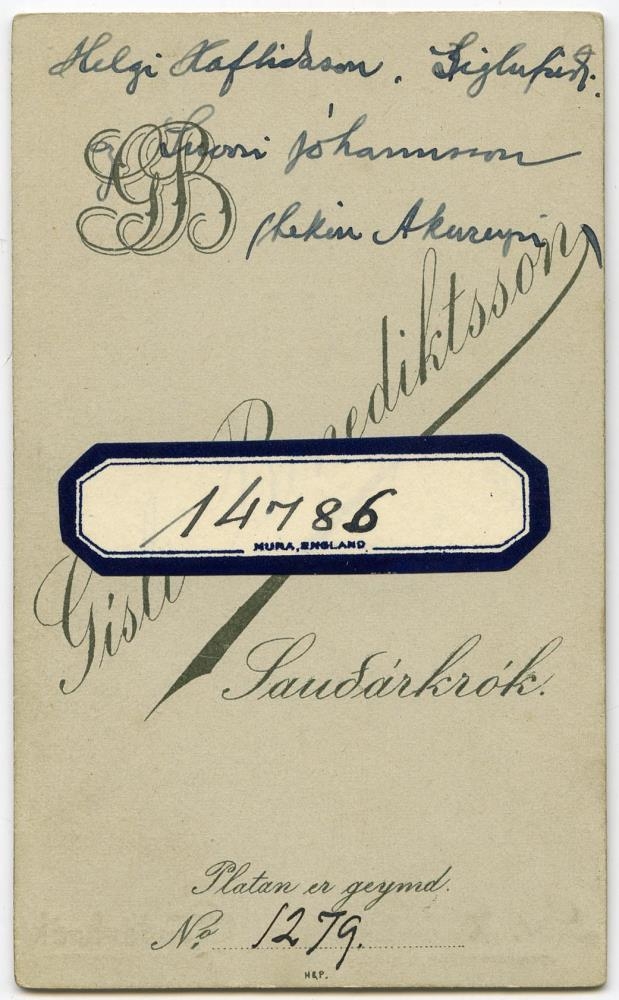 Helgi Hafliðason. Siglufirði.
og Snorri Jóhannsson
Akureyri
GB
Gísli Benediktsson
14786
MURA, ENGLAND
Sauðárkrók.
Platan er geymd.
No. 1279.
H&P.